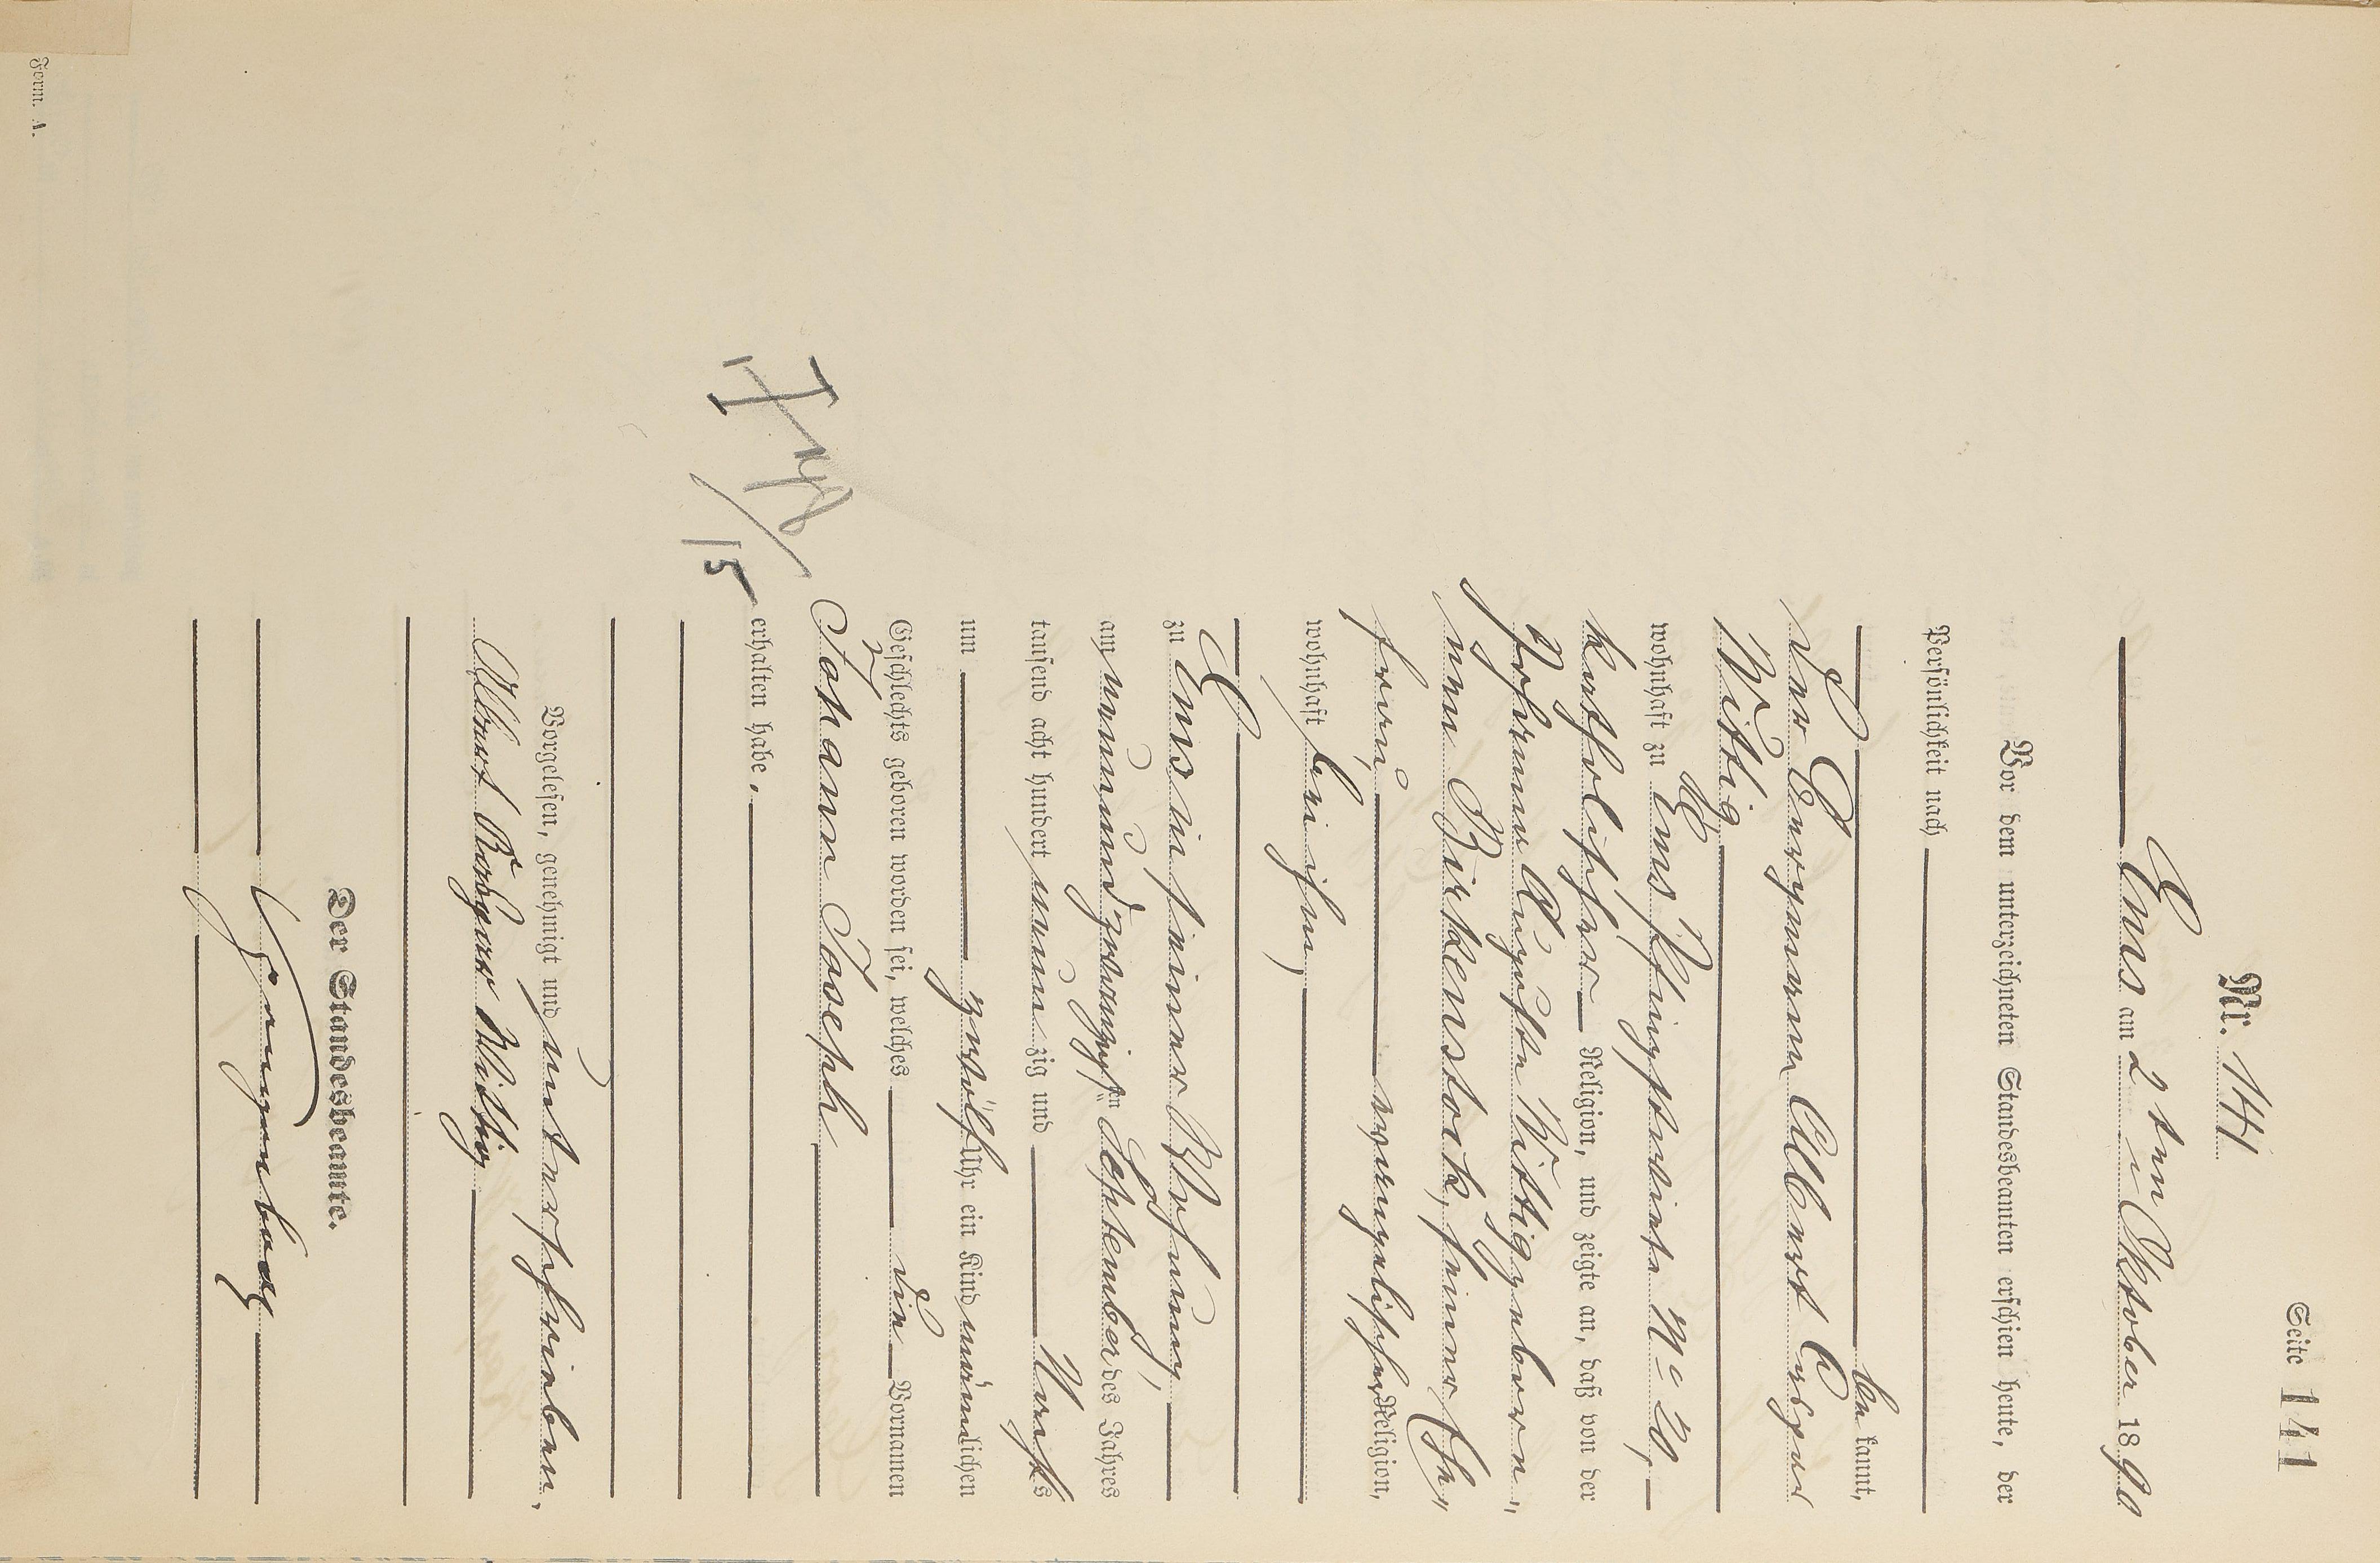 Seite 141
Nr. 141
Ems am 2ten Oktober 1890
Vor dem unterzeichneten Standesbeamten erschien heute, der
Persönlichkeit nach
be kannt,
der Bergmann Albert Caspar
Wittig
wohnhaft zu Ems, Pfingstwiese No 20,
katholischer Religion, und zeigte an, daß von der
Johanna Auguste Wittig gebore-
nen Birkenstock, seiner Ehe-
frau, evangelischer Religion,
wohnhaft bei ihm,
zu Ems in seiner Wohnung,
am neunundzwanzigsten September des Jahres
tausend acht hundert neunzig und Nachts
um zwölf Uhr ein Kind männlichen
Geschlechts geboren worden sei, welches die Vornamen
Johann Joseph
erhalten habe.
Vorgelesen, genehmigt und unterschrieben,
Albert Wittig
Der Standesbeamte.
15
Form. A.